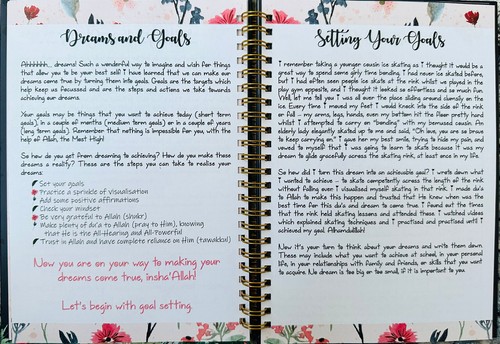 Dreams and Goals
Ahhhhhh... dreams! Such a wonderful way to imagine and wish for things
that allow you to be your best self! I have learned that we can make our
dreams come true by turning them into goals. Goals are the targets which
help keep us focussed and are the steps and actions we take towards
achieving our dreams.
Your goals may be things that you want to achieve today (short term
goals), in a couple of months (medium term goals) or in a couple of years
(long term goals). Remember that nothing is impossible for you, with the
help of Allah, the Most High!
So how do you get from dreaming to achieving? How do you make these
dreams a reality? These are the steps you can take to realise your
dreams:
Set your goals
Practice a sprinkle of visualisation
Add some positive affirmations
Check your mindset
Be very grateful to Allah (shukr)
Make plenty of du'a to Allah (pray to Him), knowing
that He is the All-Hearing and All-Powerful
Trust in Allah and have complete reliance on Him (tawakkul)
Now you are on your way to making your
dreams come true, insha'Allah!
Let's begin with goal setting.
Setting Your Goals
I remember taking a younger cousin ice skating as I thought it would be a
great way to spend some girly time bonding. I had never ice skated before,
but I had often seen people ice skate at the rink whilst we played in the
play gym opposite, and I thought it looked so effortless and so much fun.
Well, let me tell you I was all over the place sliding around clumsily on the
ice. Every time I moved my feet I would knock into the side of the rink
or fall – my arms, legs, hands, even my bottom hit the floor pretty hard
whilst I attempted to carry on "bonding" with my bemused cousin. An
elderly lady elegantly skated up to me and said, "Oh love, you are so brave
to keep carrying on." I gave her my best smile, trying to hide my pain, and
vowed to myself that I was going to learn to skate because it was my
dream to glide gracefully across the skating rink, at least once in my life.
So how did I turn this dream into an achievable goal? I wrote down what
I wanted to achieve – to skate competently across the length of the rink
without falling over. I visualised myself skating in that rink. I made du'a
to Allah to make this happen and trusted that He knew when was the
best time for this du'a and dream to come true. I found out the times
that the rink held skating lessons and attended these. I watched videos
which explained skating techniques and I practised and practised until I
achieved my goal. Alhamdulillah!
Now it's your turn to think about your dreams and write them down.
These may include what you want to achieve at school, in your personal
life, in your relationships with family and friends, or skills that you want
to acquire. No dream is too big or too small, if it is important to you.